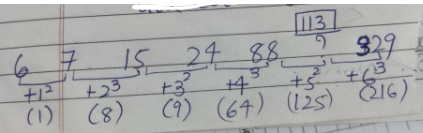 113
6 7 15 24 88 ? 329
+1² +2³ +3² +4³ +5² +6³
(1) (8) (9) (64) (125) (216)